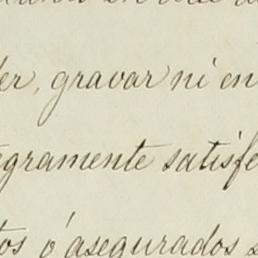 er, gravar ni en
egramente satisfe
tos ó asegurados s